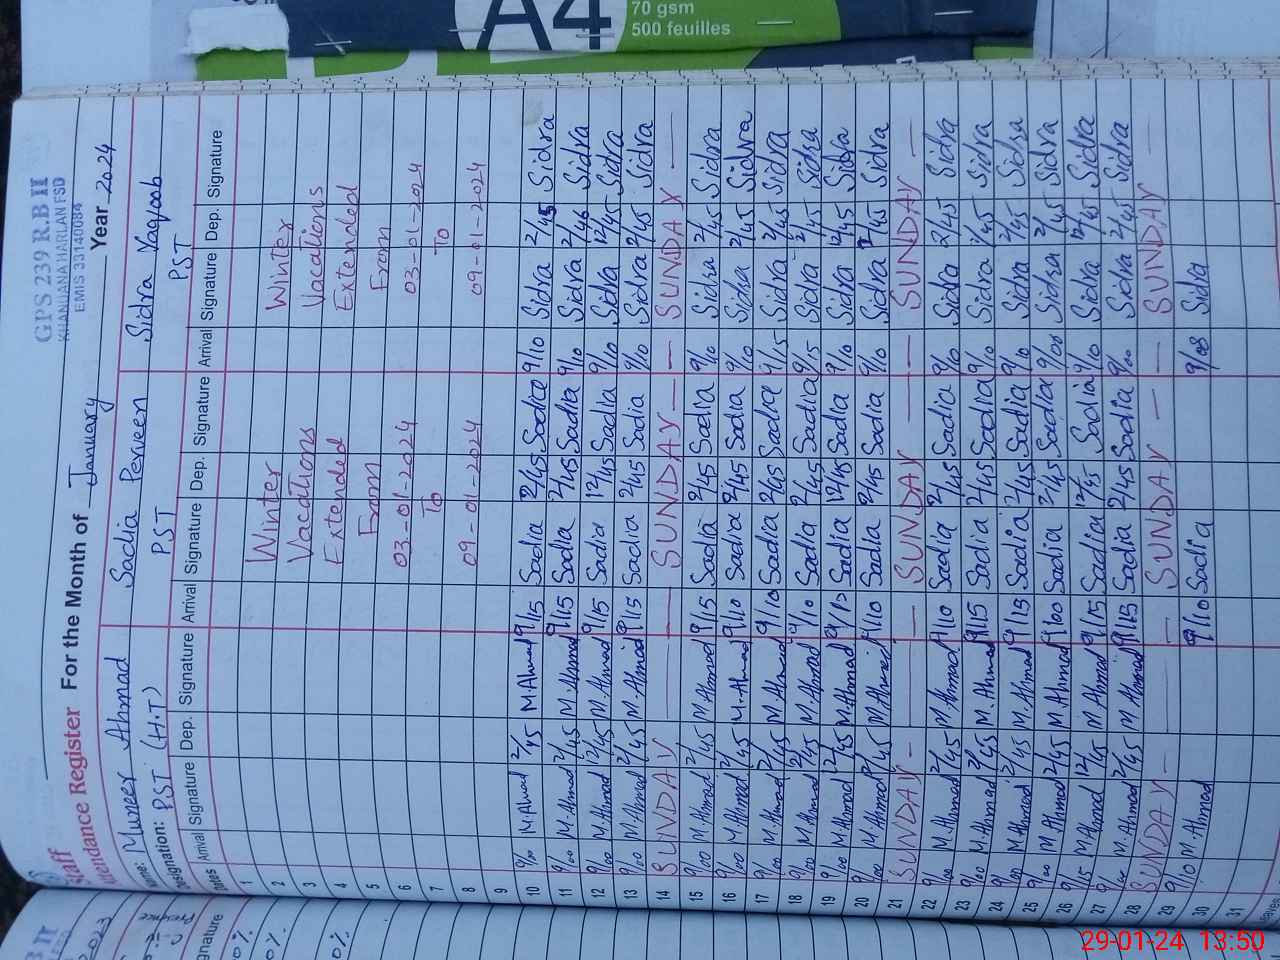 A4
70 gsm
500 feuilles
GPS 239 RB II
KHANUANA HARLAN FSD
EMIS 33140084
Staff
Attendance Register For the Month of January Year 2024
Name: Muneer Ahmad Sadia Perveen Sidra Yaqoob
Designation: PST (H.T) PST PST
Dates Arrival Signature Dep. Signature Arrival Signature Dep. Signature Arrival Signature Dep. Signature
1
2 Winter Winter
3 Vacations Vacations
4 Extended Extended
5 From From
6 03-01-2024 03-01-2024
7 To To
8 09-01-2024 09-01-2024
9
10 9/00 M Ahmad 2/45 M Ahmad 9/15 Sadia 2/45 Sadia 9/10 Sidra 2/45 Sidra
11 9/00 M. Ahmad 2/45 M. Ahmad 9/15 Sadia 2/45 Sadia 9/10 Sidra 2/45 Sidra
12 9/00 M. Ahmad 12/45 M. Ahmad 9/15 Sadia 12/45 Sadia 9/10 Sidra 12/45 Sidra
13 9/00 M. Ahmad 2/45 M. Ahmad 9/15 Sadia 2/45 Sadia 9/10 Sidra 2/45 Sidra
14 SUNDAY SUNDAY SUNDAY
15 9/00 M. Ahmad 2/45 M. Ahmad 9/15 Sadia 2/45 Sadia 9/10 Sidra 2/45 Sidra
16 9/00 M. Ahmad 2/45 M. Ahmad 9/10 Sadia 2/45 Sadia 9/10 Sidra 2/45 Sidra
17 9/00 M. Ahmad 2/45 M. Ahmad 9/10 Sadia 2/45 Sadia 9/15 Sidra 2/45 Sidra
18 9/00 M. Ahmad 2/45 M. Ahmad 9/10 Sadia 2/45 Sadia 9/15 Sidra 2/45 Sidra
19 9/00 M. Ahmad 12/45 M. Ahmad 9/10 Sadia 12/45 Sadia 9/10 Sidra 12/45 Sidra
20 9/00 M. Ahmad 2/45 M. Ahmad 9/10 Sadia 2/45 Sadia 9/10 Sidra 2/45 Sidra
21 SUNDAY SUNDAY SUNDAY
22 9/00 M. Ahmad 2/45 M. Ahmad 9/10 Sadia 2/45 Sadia 9/10 Sidra 2/45 Sidra
23 9/00 M. Ahmad 2/45 M. Ahmad 9/15 Sadia 2/45 Sadia 9/10 Sidra 2/45 Sidra
24 9/00 M. Ahmad 2/45 M. Ahmad 9/15 Sadia 2/45 Sadia 9/10 Sidra 2/45 Sidra
25 9/00 M. Ahmad 2/45 M. Ahmad 9/00 Sadia 2/45 Sadia 9/00 Sidra 2/45 Sidra
26 9/15 M. Ahmad 12/45 M. Ahmad 9/15 Sadia 12/45 Sadia 9/10 Sidra 12/45 Sidra
27 9/00 M. Ahmad 2/45 M. Ahmad 9/15 Sadia 2/45 Sadia 9/00 Sidra 2/45 Sidra
28 SUNDAY SUNDAY SUNDAY
29 9/10 M. Ahmad 9/10 Sadia 9/08 Sidra
30
31
29-01-24 13:50